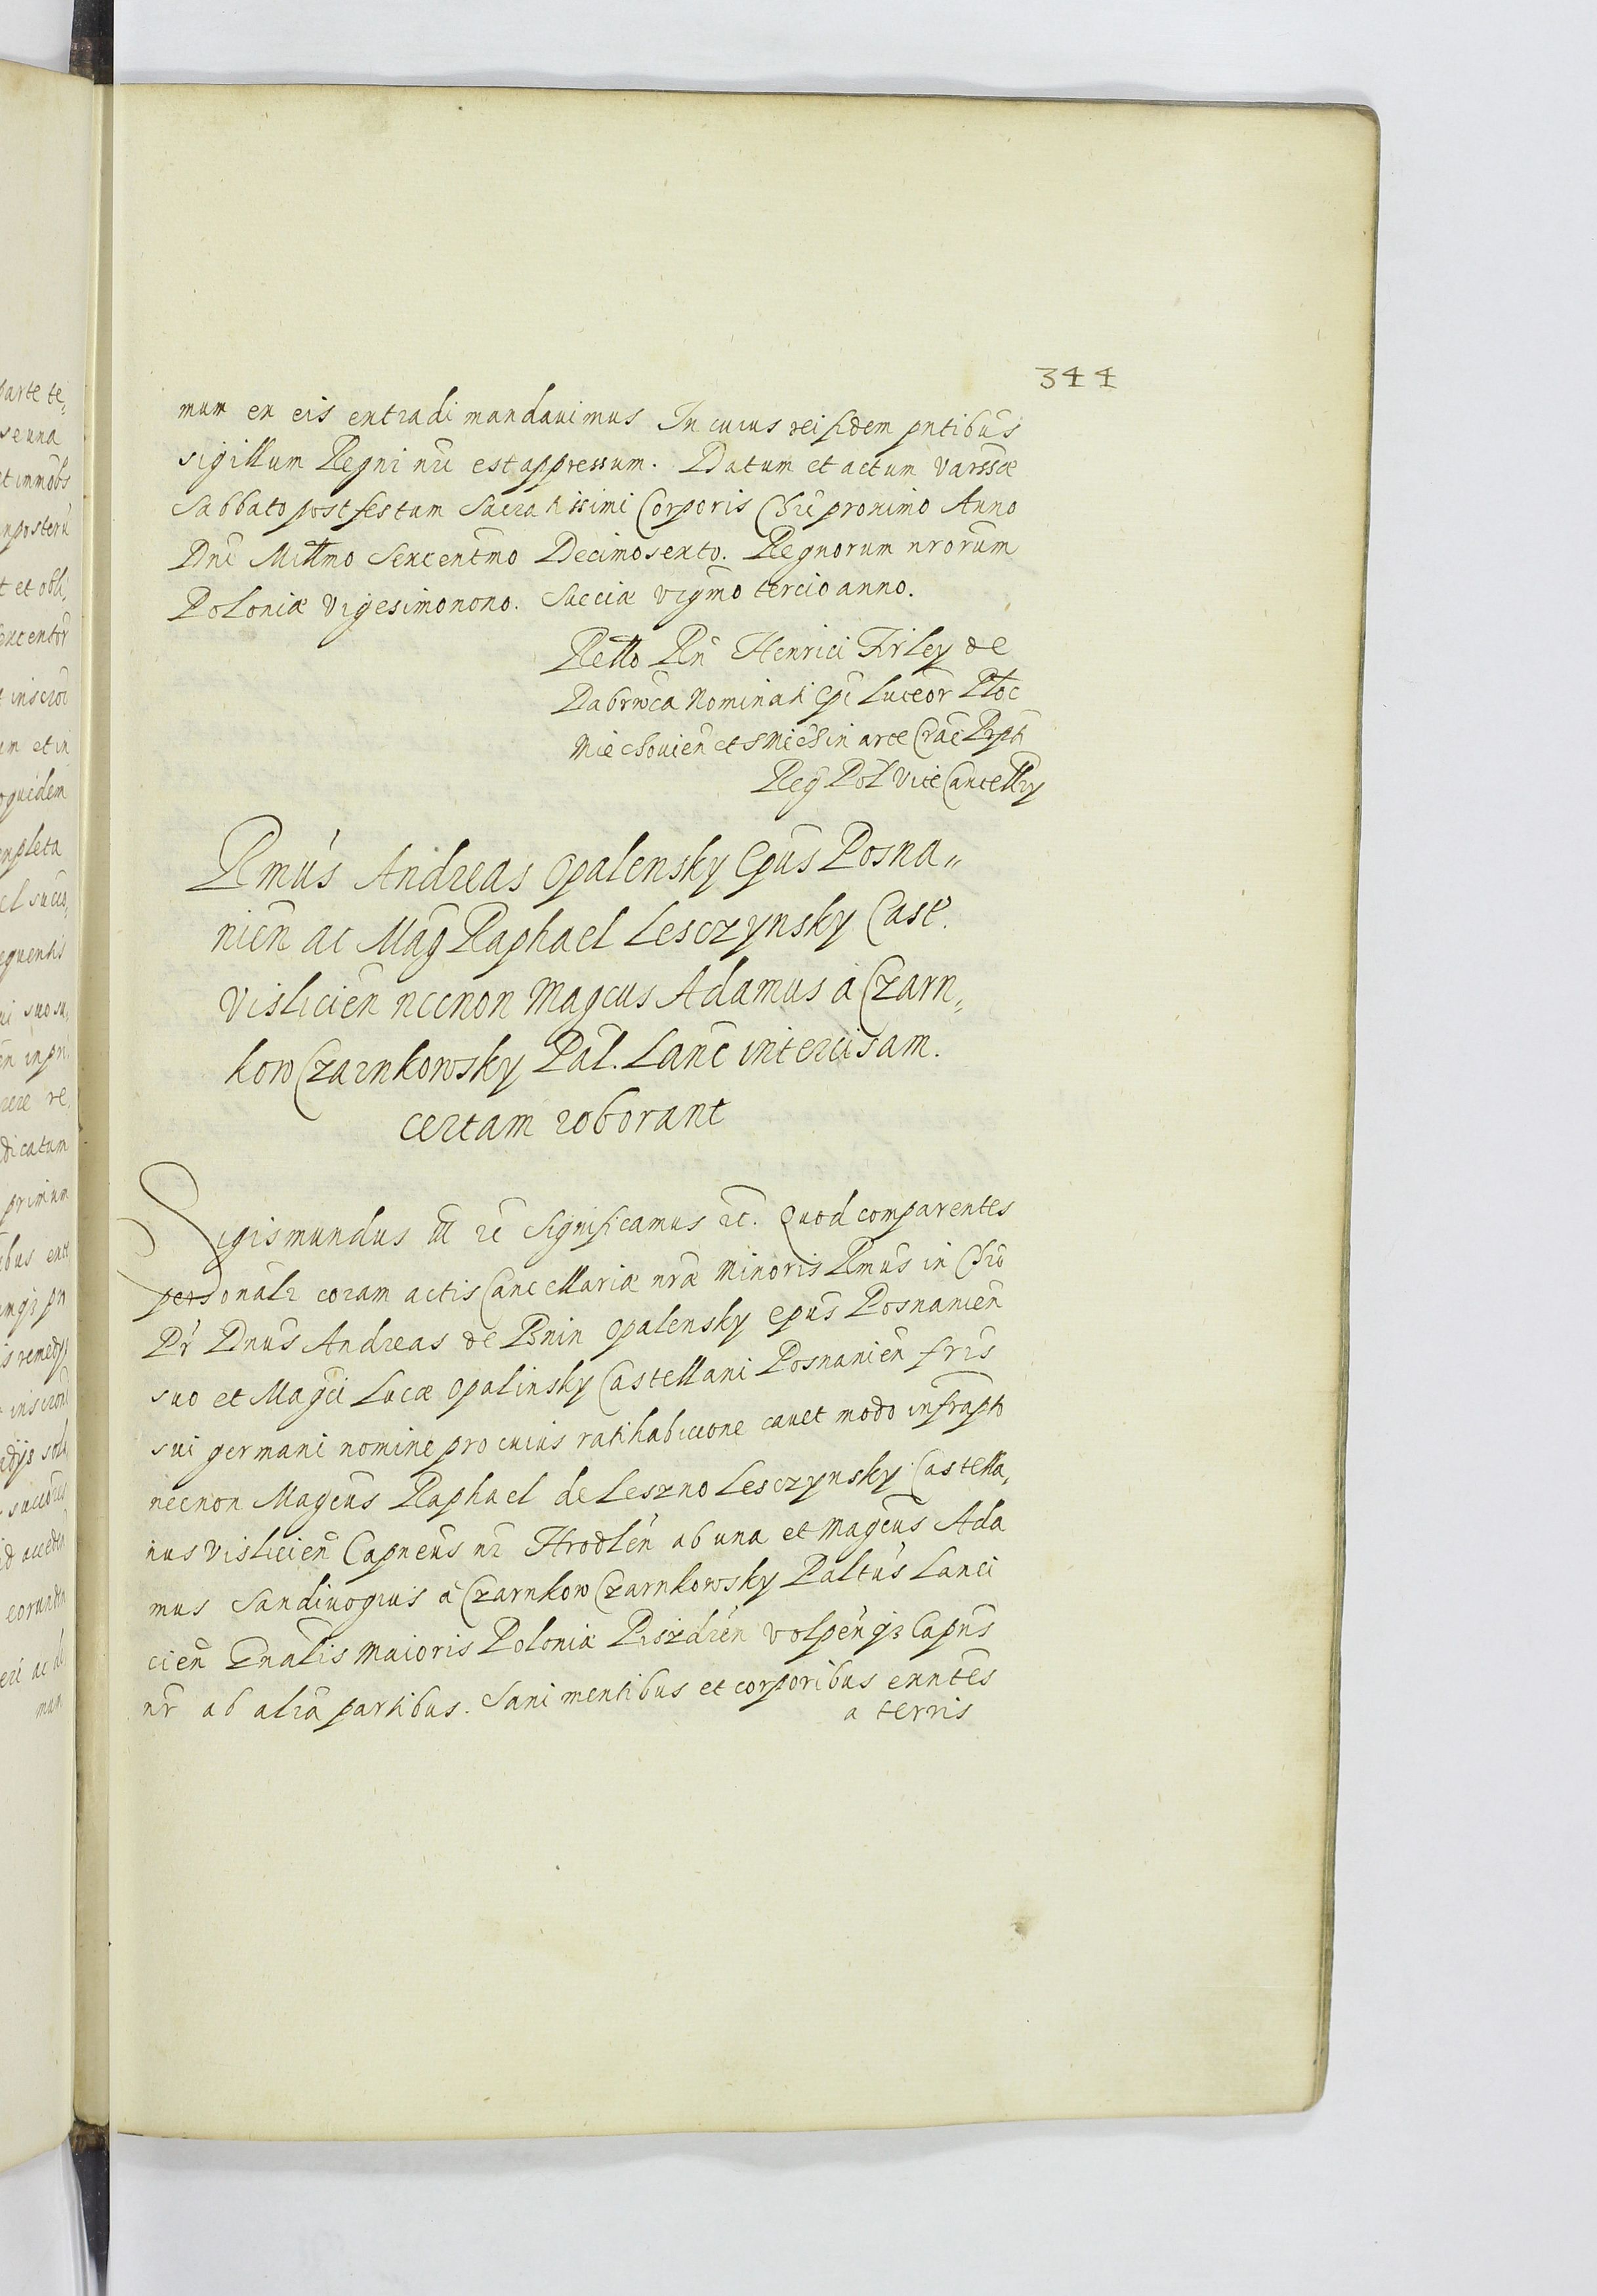 344
mum ex eis extradi mandauimus In cuius rei fidem pntibus
sigillum Regni nri est appressum. Datum et actum Varssae
Sabbato post festum Sacratissimi Corporis Chri proximo Anno
Dni Millmo Sexcentmo Decimosexto. Regnorum nrorum
Poloniae Vigesimonono. Sueciae vigmo tercio anno.
Rello Rn Henrici Firley de
Dabrowca Nominati Epi Luceor Ploc
Miechouien et S Mich in arce Crac Prpti
Reg Pol Vice Cancellrij
Rmus Andreas Opalensky Epus Posna„
nien ac Mag Raphael Lesczynsky Cast.
Vislicien necnon Magcus Adamus a Czarn,
kow Czarnkowsky Pal. Lanc intercisam.
certam roborant
Sigismundus III etc Significamus etc. Quod comparentes
personalr coram actis Cancellariae nrae Minoris Rmus in Chro
Pr Dnus Andreas de Bnin Opalensky Epus Posnanien
suo et Magci Lucae Opalinsky Castellani Posnanien fris
sui germani nomine pro cuius ratihabicione cauet modo infrapto
necnon Magcus Raphael de Leszno Lesczynsky Castella,
nus Vislicien Capneus nr Hrodlen ab una et Magcus Ada
mus Sandiuogius a Czarnkow Czarnkowsky Paltus Lanci
cien Gnalis Maioris Poloniae Pisdren Volpen qz Capns
nr ab alia partibus. Sani mentibus et corporibus exntes
a terris
parte te,
se una
et immobs
inposteru
t et obli,
inscroi
um et in
oquidem
mpleta
el succo,
equentis
ui suo su,
en in pri
rere re,
dicatum
primum
ibus
is remedijs
eorundm
mum